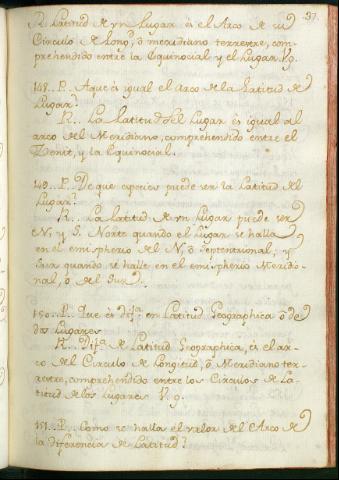 37.
R. Latitud de un Lugar es el Arco de su
Circulo de Longd, ò meridiano terrestre, com-
prehendido entre la Equinocial y el Lugar. Vg.
148.. P.. A que es igual el Arco de la Latitud de
Lugar?
R... La latitud del Lugar es igual al
arco del Meridiano, comprehendido entre el
Zenit, y la Equinocial.
149.. P.. De que especies puede ser la Latitud del
Lugar?
R... La latitud de un Lugar puede ser
N, y S. Norte quando el Lugar se halla
en el emispherio del N, ò septentrional; y
Sur quando se halle en el emispherio Meridio-
nal, ò del Sur.
150.. P.. Que es difa en Latitud Geographica ò de
dos Lugares
R. Difa de Latitud Geographica, es el ar-
co del Circulo de Longitud, ò Meridiano ter-
restre, comprehendido entre los Circulos de La-
titud de los Lugares V.g.
151.. P... Como se halla el valor del Arco de
la diferencia de Latitud?